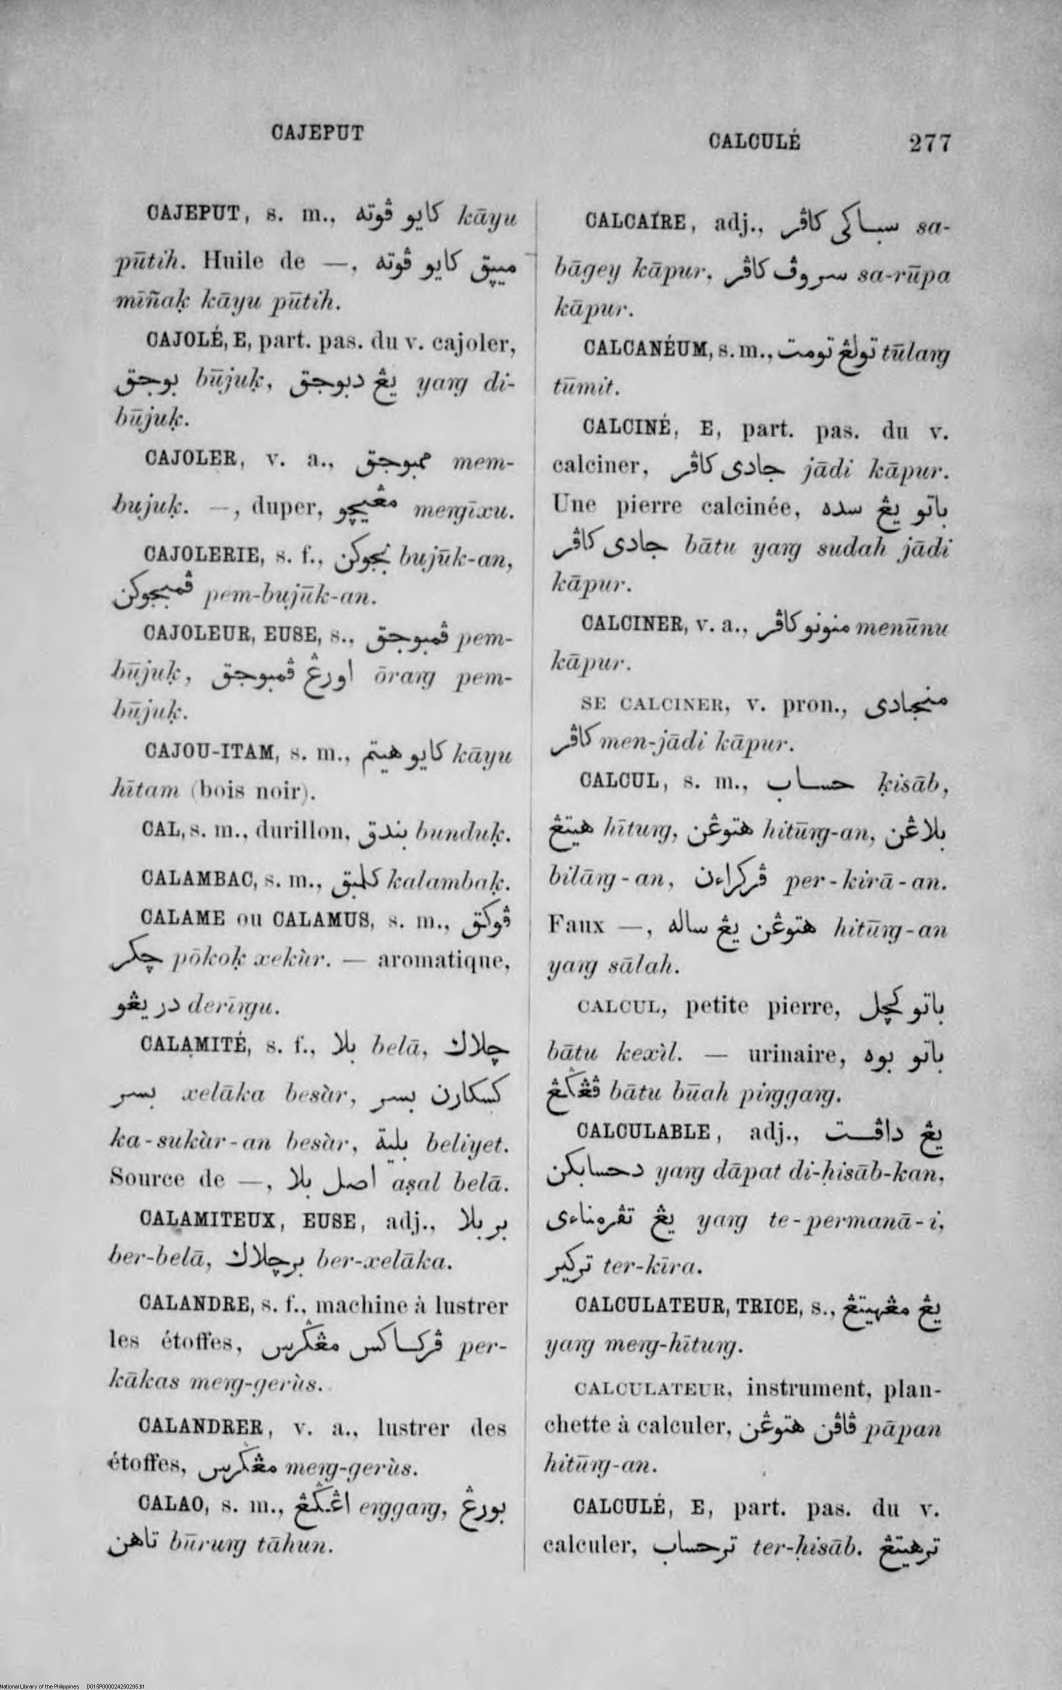 CAJEPUT
CALCULÉ 277
CAJEPUT, s. m., كايو ڤوته kāyu
pūtih. Huile de —, ميڽق كايو ڤوته
mīñaḳ kāyu pūtih.
CAJOLÉ, E, part. pas. du v. cajoler,
بوجق būjuḳ, يڠ دبوجق yaꞑg di-
būjuḳ.
CAJOLER, v. a., ممبوجق mem-
bujuḳ. —, duper, مڠيچو meꞑgīxu.
CAJOLERIE, s. f., بجوكن bujūk-an,
ڤمبجوكن pem-bujūk-an.
CAJOLEUR, EUSE, s., ڤمبوجق pem-
būjuḳ, اورڠ ڤمبوجق ōraꞑg pem-
būjuḳ.
CAJOU-ITAM, s. m., كايو هيتم kāyu
hītam (bois noir).
CAL, s. m., durillon, بندق bunduḳ.
CALAMBAC, s. m., كلمبق kalambaḳ.
CALAME ou CALAMUS, s. m., ڤوكق
چكر pōkoḳ xekùr. — aromatique,
دريڠو derīꞑgu.
CALAMITÉ, s. f., بلا belā, چلاك
بسر xelāka besàr, كسكارن بسر
ka-sukàr-an besàr, بلية beliyet.
Source de —, اصل بلا aṣal belā.
CALAMITEUX, EUSE, adj., بربلا
ber-belā, برچلاك ber-xelāka.
CALANDRE, s. f., machine à lustrer
les étoffes, ڤركاكس مڠݢرس per-
kākas meꞑg-gerùs.
CALANDRER, v. a., lustrer des
étoffes, مڠݢرس meꞑg-gerùs.
CALAO, s. m., اڠݢڠ eꞑggaꞑg, بورڠ
تاهن būruꞑg tāhun.
CALCAIRE, adj., سباكي كاڤر sa-
bāgey kāpur, سروڤ كاڤر sa-rūpa
kāpur.
CALCANÉUM, s. m., تولڠ تومت tūlaꞑg
tūmit.
CALCINÉ, E, part. pas. du v.
calciner, جادى كاڤر jādi kāpur.
Une pierre calcinée, باتو يڠ سده
جادى كاڤر bātu yaꞑg sudah jādi
kāpur.
CALCINER, v. a., منونو كاڤر menūnu
kāpur.
SE CALCINER, v. pron., منجادى
كاڤر men-jādi kāpur.
CALCUL, s. m., حساب ḥisāb,
هيتڠ hītuꞑg, هتوڠن hitūꞑg-an, بلاڠن
bilāꞑg-an, ڤركراءن per-kirā-an.
Faux —, هتوڠن يڠ ساله hitūꞑg-an
yaꞑg sālah.
CALCUL, petite pierre, باتو كچل
bātu kexìl. — urinaire, باتو بوه
ڤڠݢڠ bātu būah piꞑggaꞑg.
CALCULABLE, adj., يڠ داڤت
دحسابكن yaꞑg dāpat di-ḥisāb-kan,
يڠ تڤرمناءى yaꞑg te-permanā-i,
تركير ter-kīra.
CALCULATEUR, TRICE, s., يڠ مڠهيتڠ
yaꞑg meꞑg-hītuꞑg.
CALCULATEUR, instrument, plan-
chette à calculer, ڤاڤن هتوڠن pāpan
hitūꞑg-an.
CALCULÉ, E, part. pas. du v.
calculer, ترحساب ter-ḥisāb. ترهيتڠ
National Library of the Philippines